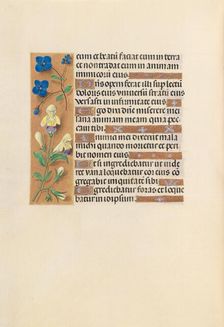 eum et beatū faciat eum in terra
et non tradat eum in animam
inimicorū eius
Dns opem ferat illi sup lecti
doloris eius universū stratū eius
versasti in infirmitate eius
Ego dixi dñe miserere mei
sana animam meam quia pec
cavi tibi
Inimici mei dixerūt mala
michi quando morietur et peri
bit nomen eius
Et si ingrediebatur ut vide
ret vana loquebatur cor eius cō
gregabit iniquitatē sibi
Egrediebatur foras et loque
batur in idipsum